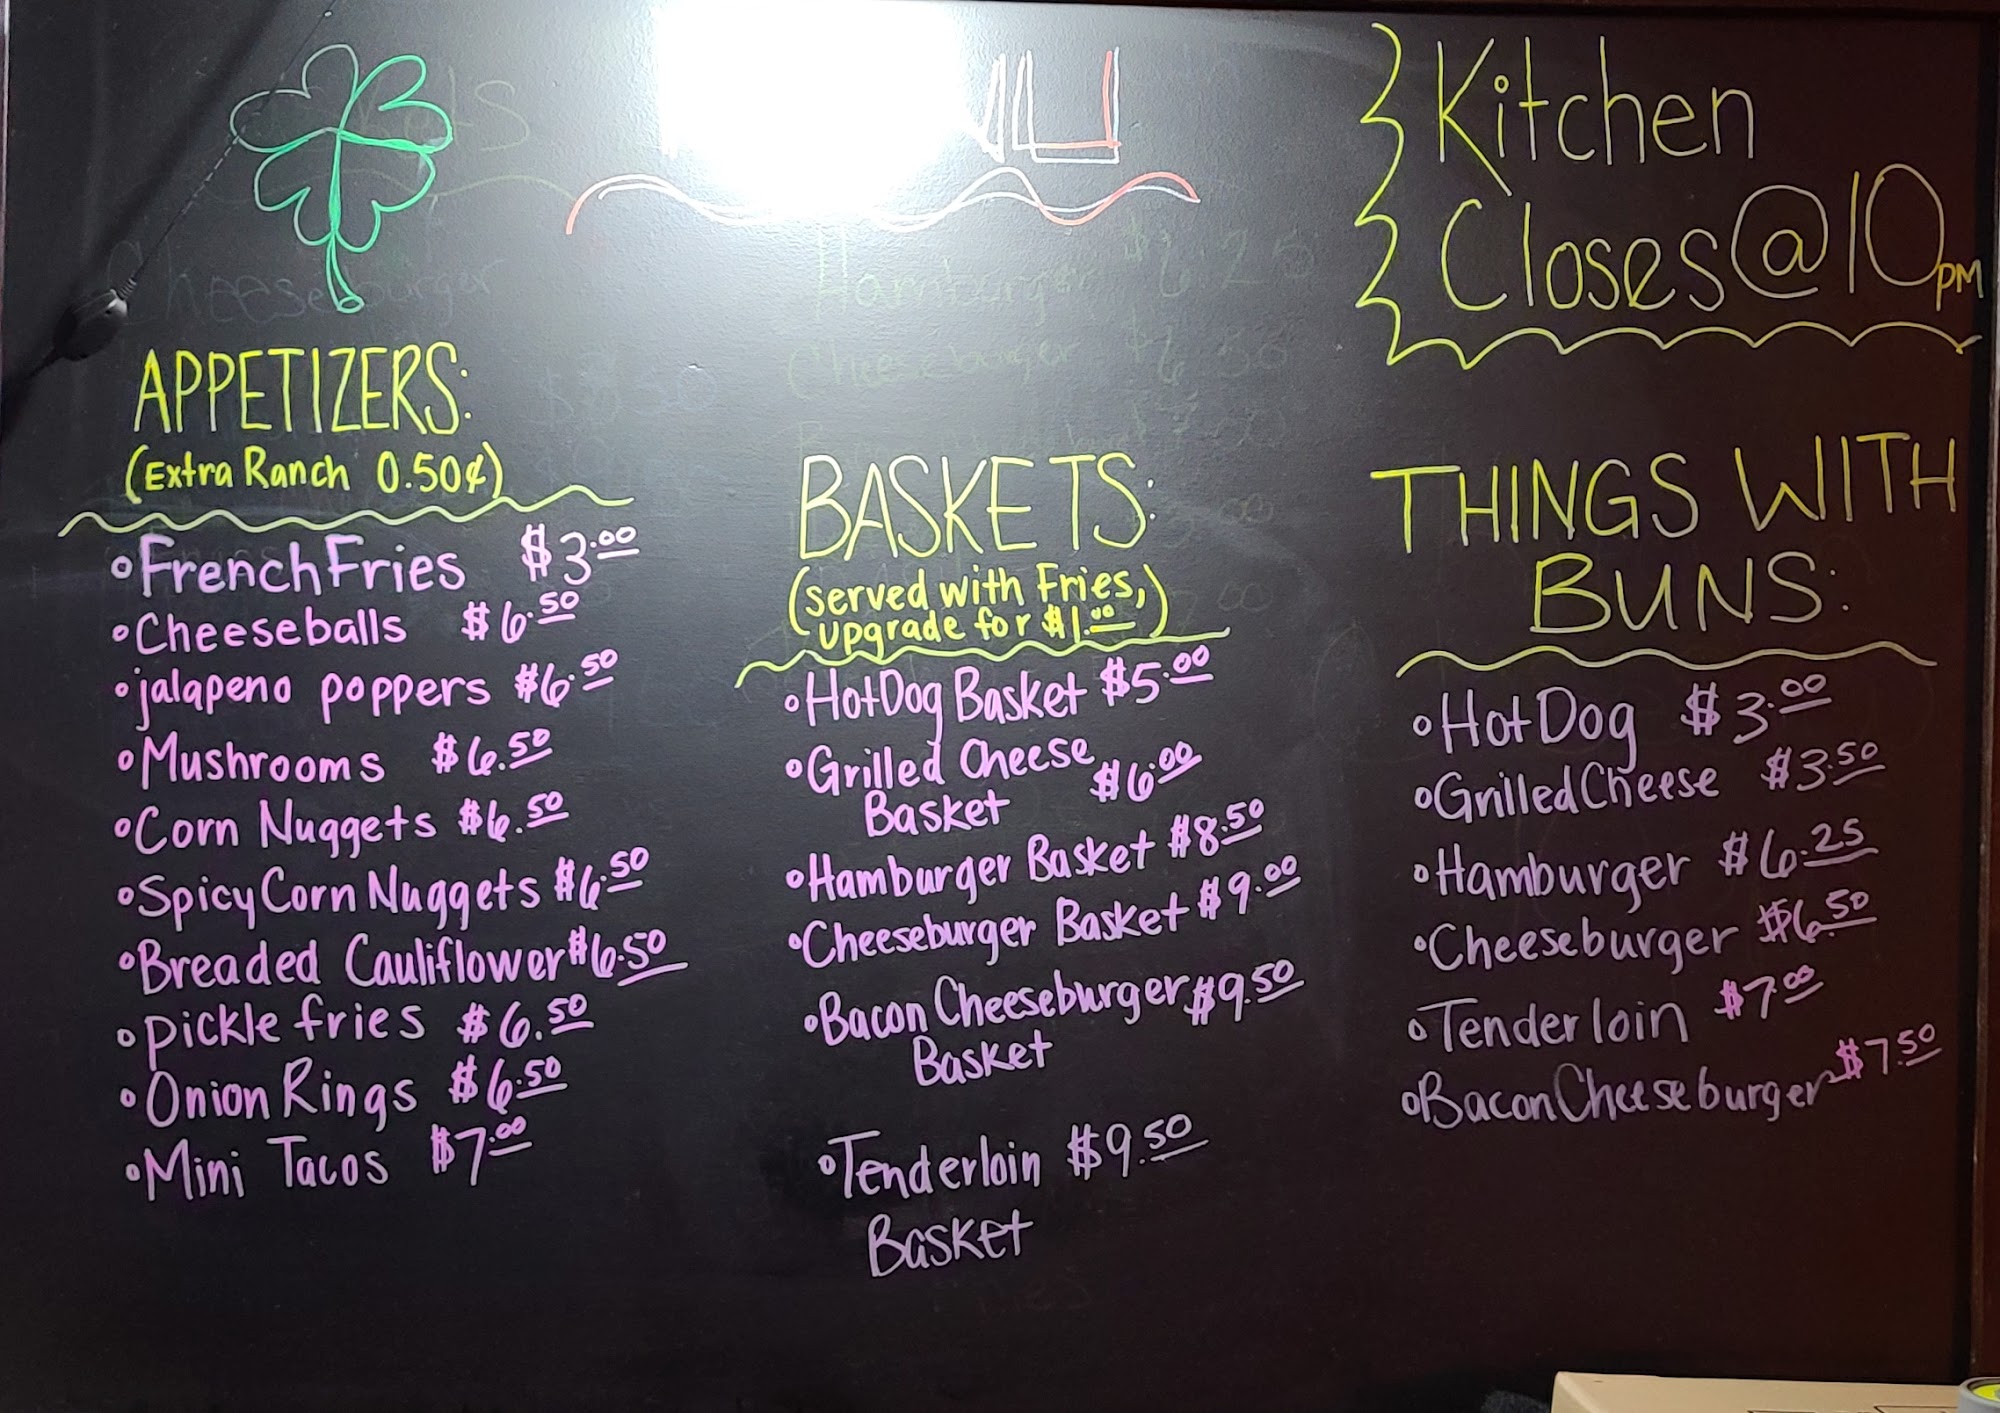 Kitchen
Closes@10PM
APPETIZERS:
(Extra Ranch 0.50¢)
French Fries $3.00
Cheeseballs $6.50
jalapeno poppers $6.50
Mushrooms $6.50
Corn Nuggets $6.50
Spicy Corn Nuggets $6.50
Breaded Cauliflower $6.50
pickle fries $6.50
Onion Rings $6.50
Mini Tacos $7.00
BASKETS:
(served with Fries,
upgrade for $1.00)
Hot Dog Basket $5.00
Grilled Cheese
Basket $6.00
Hamburger Basket $8.50
Cheeseburger Basket $9.00
Bacon Cheeseburger $9.50
Basket
Tenderloin $9.50
Basket
THINGS WITH
BUNS:
Hot Dog $3.00
Grilled Cheese $3.50
Hamburger $6.25
Cheeseburger $6.50
Tenderloin $7.00
Bacon Cheeseburger $7.50